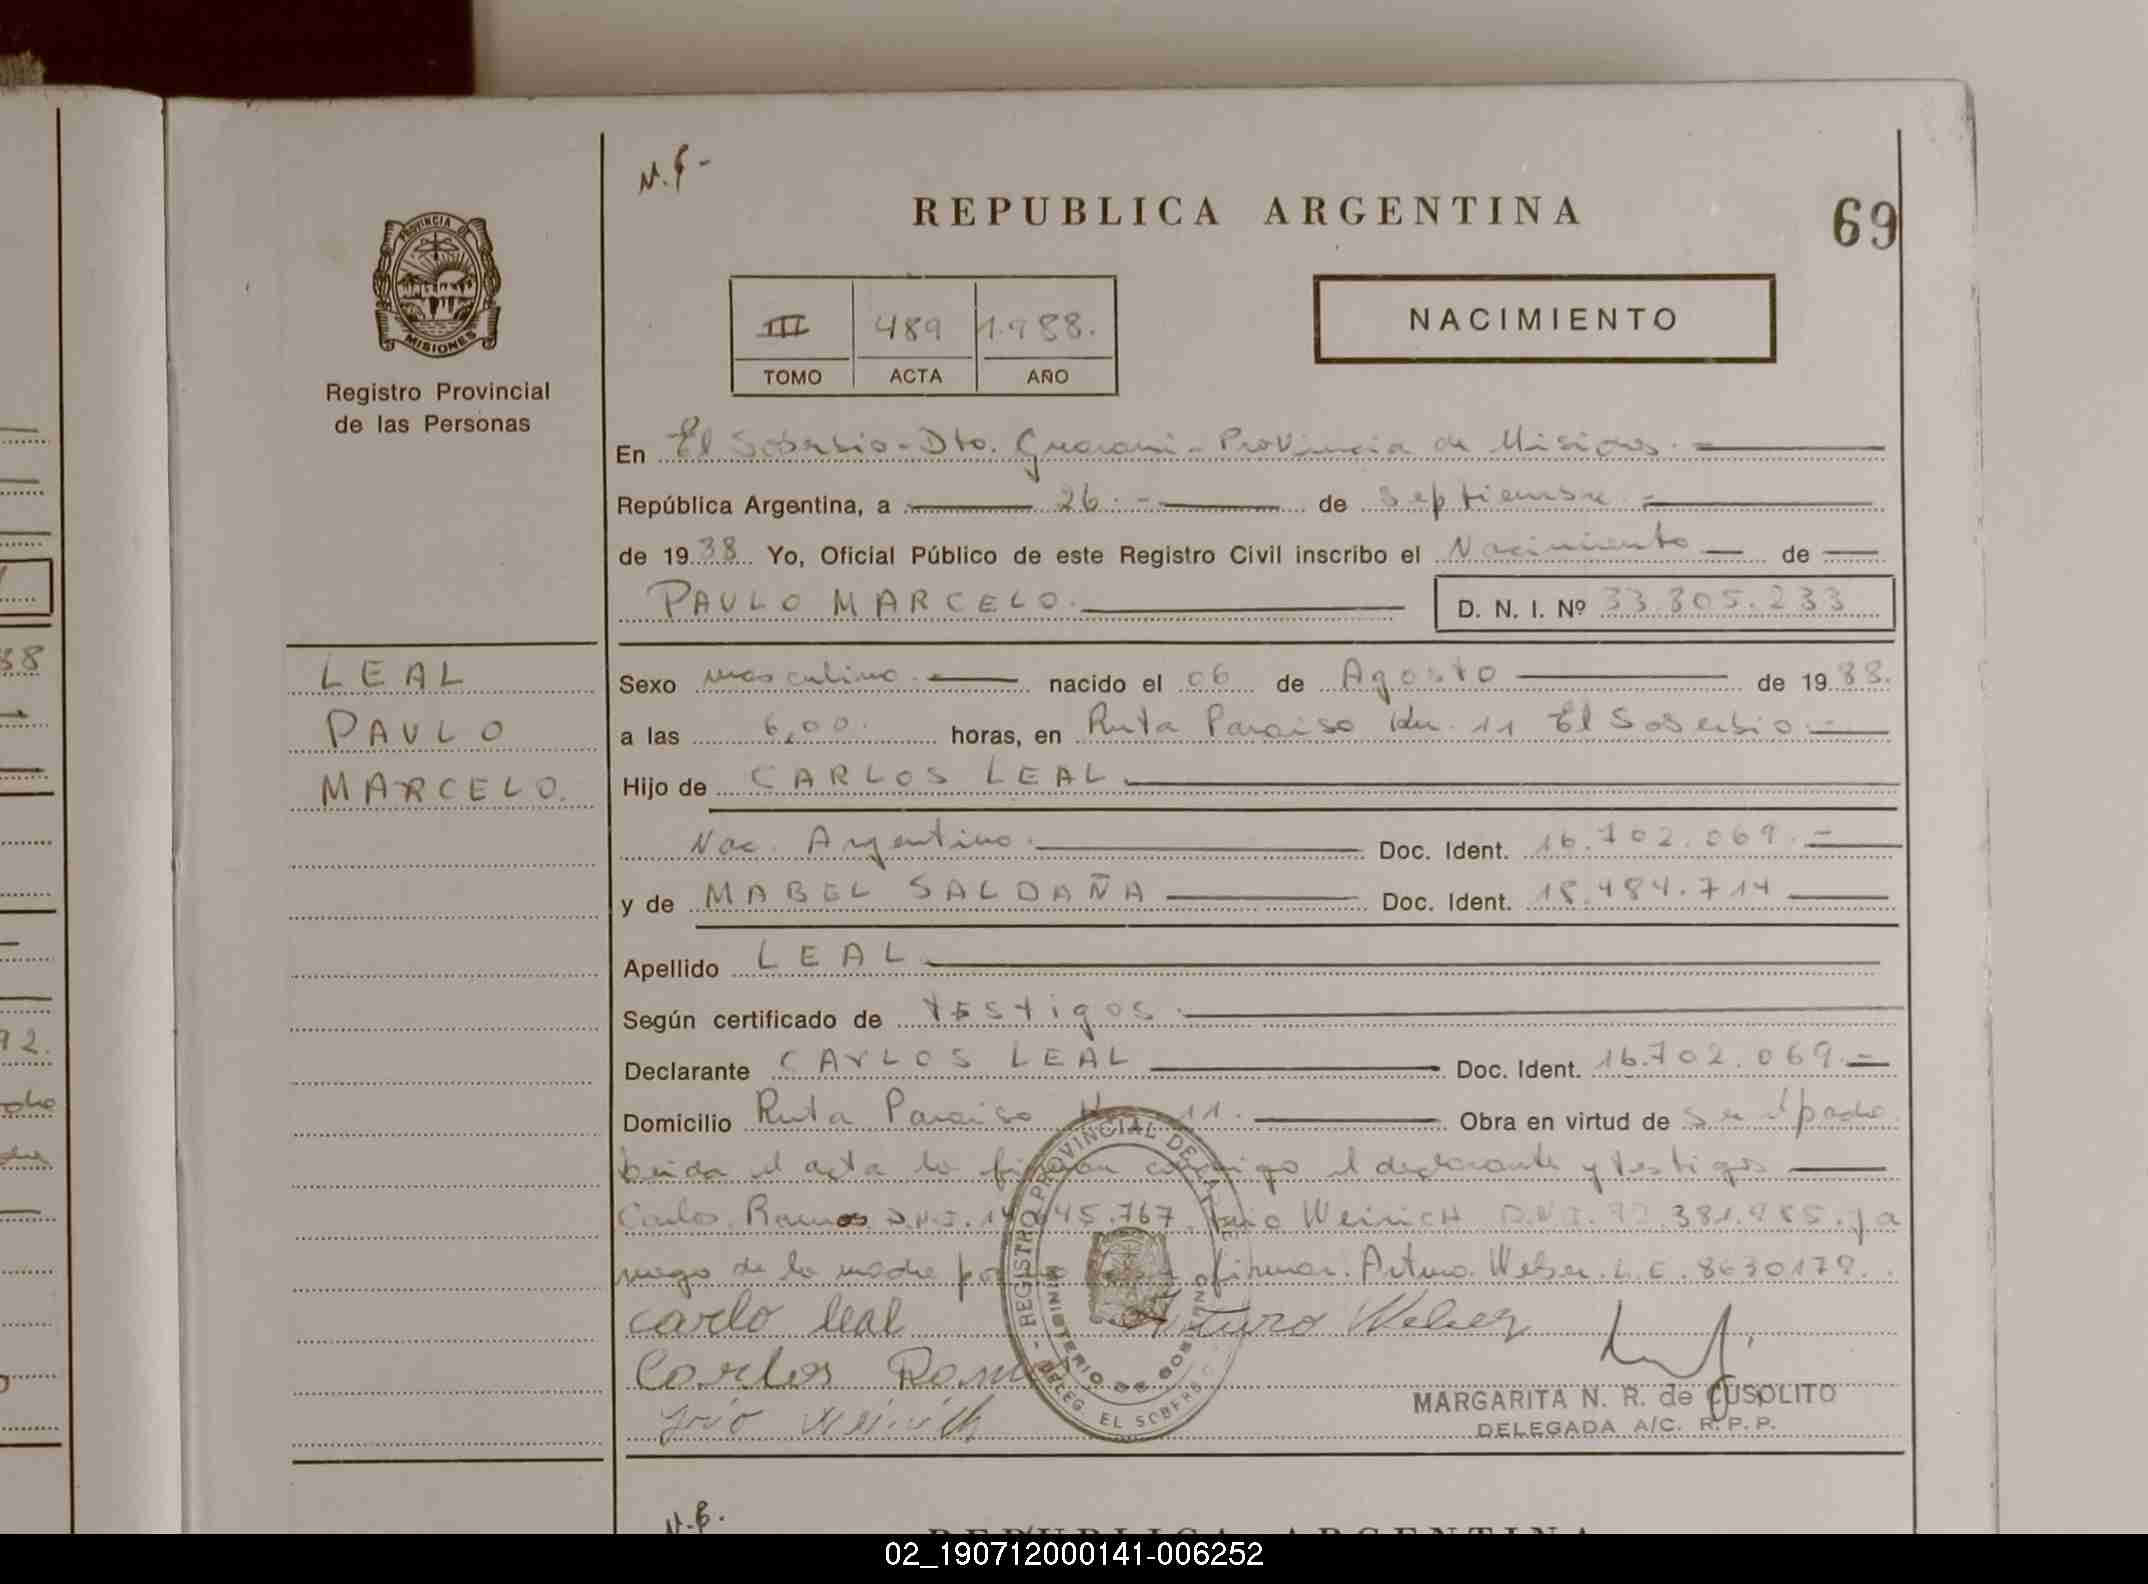 N.G-
REPUBLICA ARGENTINA
69
PROVINCIA DE
MISIONES
Registro Provincial
de las Personas
III 489 1.988.
TOMO ACTA AÑO
NACIMIENTO
En El Soberbio-Dto. Guarani-Provincia de Misiones.
República Argentina, a 26.- de septiembre.-
de 1988 Yo, Oficial Público de este Registro Civil inscribo el Nacimiento de
PAULO MARCELO. D. N. I. Nº 33.305.233
LEAL
PAULO
MARCELO.
Sexo masculino. nacido el 06 de Agosto de 1988.
a las 6,00. horas, en Ruta Paraiso Km. 11 El Soberbio
Hijo de CARLOS LEAL
Nac. Argentino. Doc. Ident. 16.702.069.-
y de MABEL SALDAÑA Doc. Ident. 18.484.714
Apellido LEAL
Según certificado de testigos.
Declarante CARLOS LEAL Doc. Ident. 16.702.069.-
Domicilio Ruta Paraiso 11. Obra en virtud de ser el padre.
leida el acta la firman conmigo el declarante y testigos
Carlos Ramos D.N.I. 45.767 Weirich D.N.I. 92.381.985. y a
ruego de la madre por firmar. Arturo Weber. L.E. 8630179.
carlo leal Arturo Weber
Carlos Ram
REGISTRO PROVINCIAL DE LA
MINISTERIO DE GOBIERNO
DELEG. EL SOBERB
MARGARITA N. R. de CUSOLITO
DELEGADA A/C. R.P.P.
N.G.
REPUBLICA ARGENTINA
02_190712000141-006252